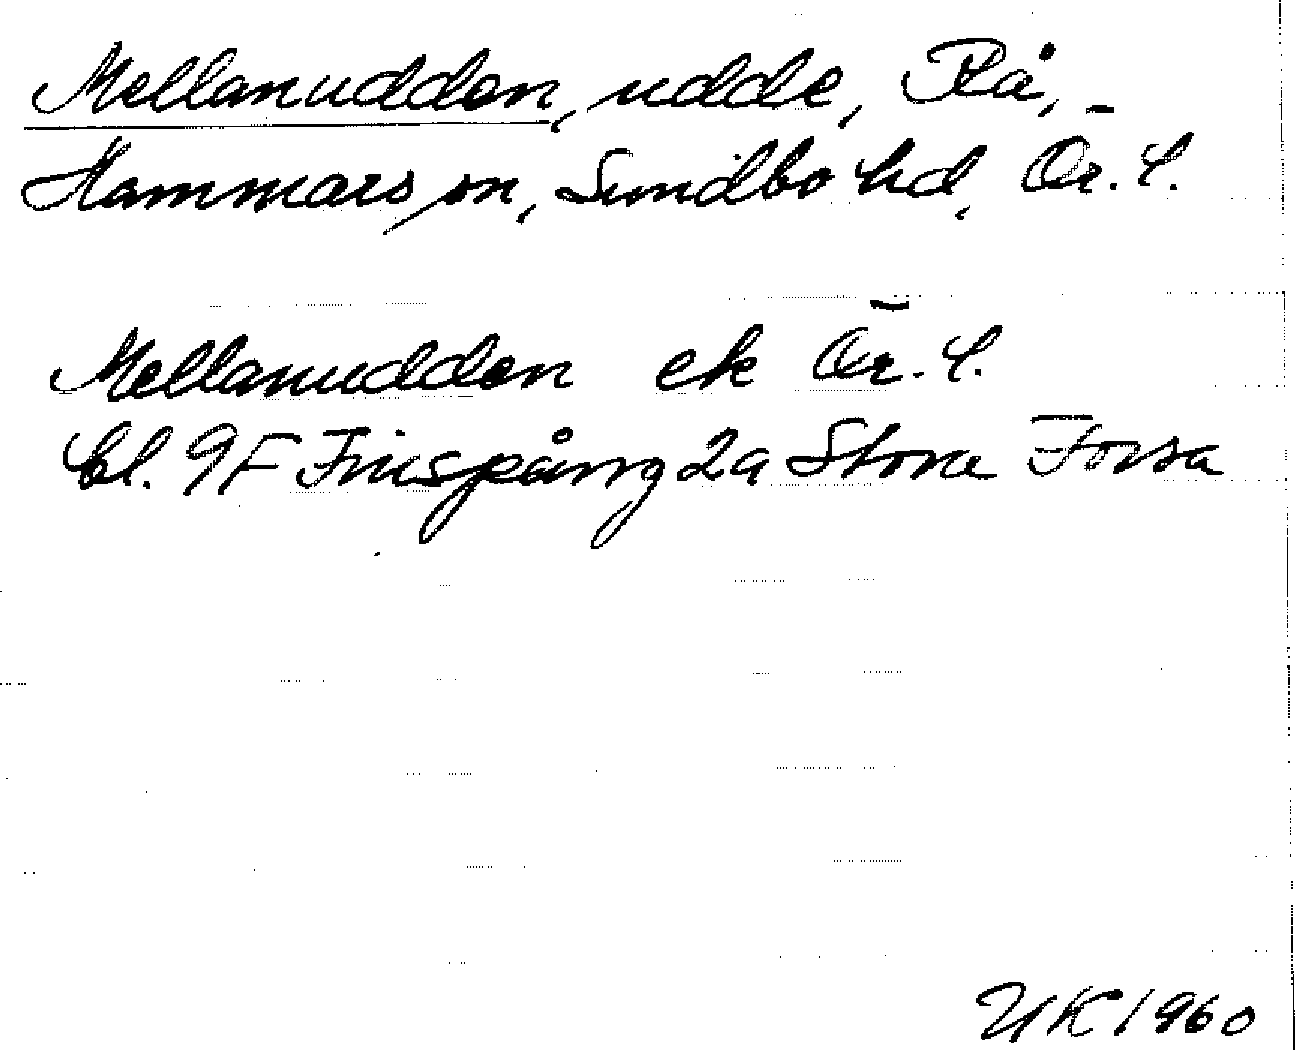 Mellanudden, udde, Rå,
Hammars sn, Sundbo hd, Ör. l.
Mellanudden ek Ör. l.
bl. 9F Finspång 2a Stora Forsa
UK 1960